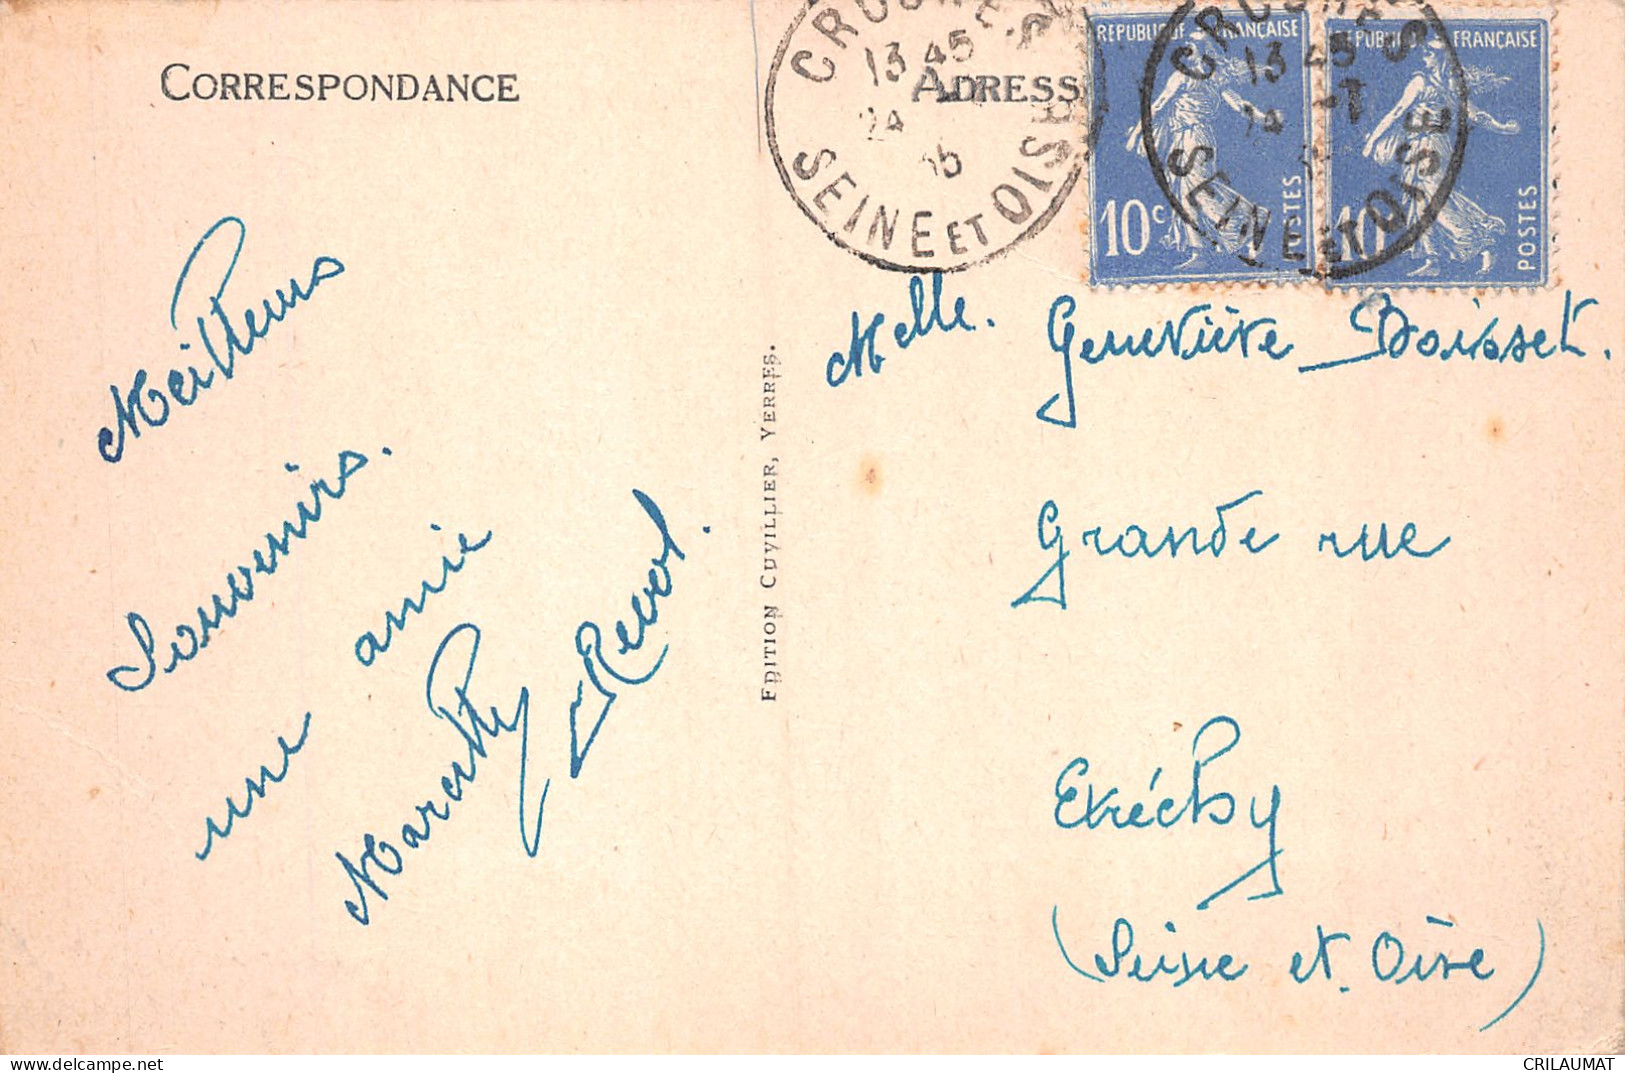 CORRESPONDANCE
ADRESS
CROSNES
13 45
24
SEINE ET OISE
REPUBLIQUE FRANÇAISE
10c
POSTES
REPUBLIQUE FRANÇAISE
10
POSTES
CROSNES
13 45
24 -7
SEINE ET OISE
Meilleurs
Souvenirs.
une amie
Marcelle Revol.
EDITION CUVILLIER, YERRES.
Melle. Geneviève Boisset.
Grande rue
Etréchy
(Seine et Oise)
CRILAUMAT